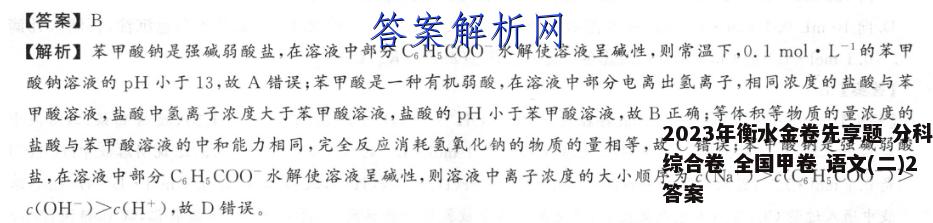 【答案】B
答案解析网
【解析】苯甲酸钠是强碱弱酸盐,在溶液中部分 C₆H₅COO⁻ 水解使溶液呈碱性,则常温下,0.1 mol·L⁻¹的苯甲
酸钠溶液的 pH 小于 13,故 A 错误;苯甲酸是一种有机弱酸,在溶液中部分电离出氢离子,相同浓度的盐酸与苯
甲酸溶液,盐酸中氢离子浓度大于苯甲酸溶液,盐酸的 pH 小于苯甲酸溶液,故 B 正确;等体积等物质的量浓度的
盐酸与苯甲酸溶液的中和能力相同,完全反应消耗氢氧化钠的物质的量相等,故 C 错误;苯甲酸钠是强碱弱酸
盐,在溶液中部分 C₆H₅COO⁻ 水解使溶液呈碱性,则溶液中离子浓度的大小顺序为 c(Na⁺)>c(C₆H₅COO⁻)>
c(OH⁻)>c(H⁺),故 D 错误。
2023年衡水金卷先享题 分科
综合卷 全国甲卷 语文(二)2
答案